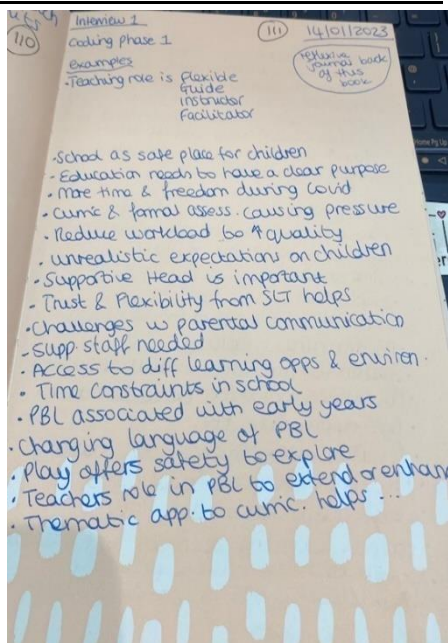 110
Interview 1
111
14/01/2023
Coding phase 1
reflexive
journal back
of this
book
examples
• Teaching role is flexible
Guide
instructor
Facilitator
• School as safe place for children
- Education needs to have a clear purpose
• More time & freedom during covid
• curric & formal assess. causing pressure
• Reduce workload to ↑ quality
• unrealistic expectations on children
• Supportive Head is important
- Trust & flexibility from SLT helps
• Challenges w parental communication
- Supp. staff needed
• Access to diff learning opps & environ.
• Time constraints in school
• PBL associated with early years
• Changing language of PBL
• Play offers safety to explore
• Teachers role in PBL to extend or enhan
• Thematic app. to curric. helps ...
Home Pg Up